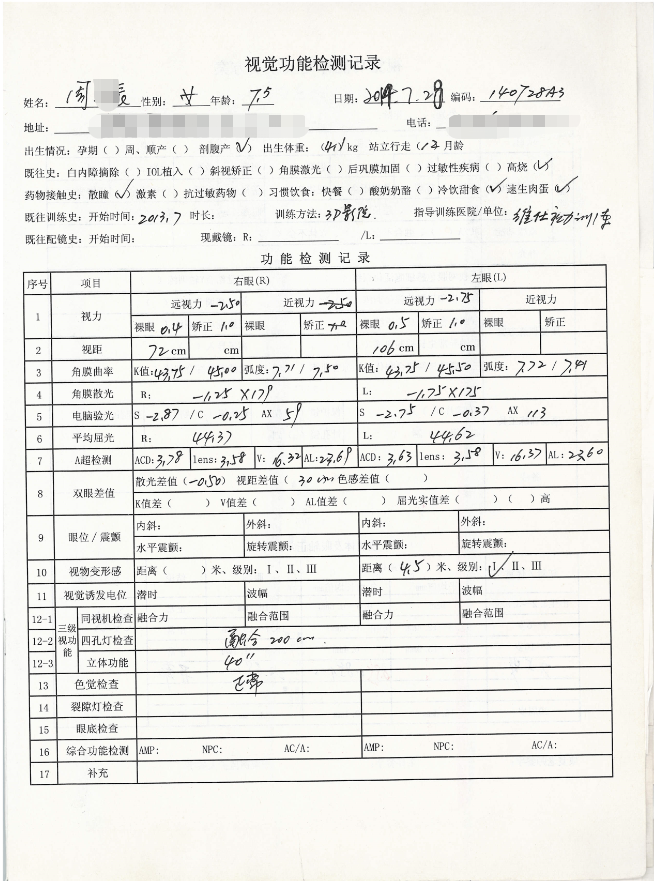 视觉功能检测记录
姓名: 周 性别: 女 年龄: 7.5 日期: 2014.7.28 编码: 140728A3
地址: 电话:
出生情况: 孕期( )周、顺产( ) 剖腹产(√) 出生体重: ( )kg 站立行走(12月龄
既往史: 白内障摘除( )IOL植入( )斜视矫正( )角膜激光( )后巩膜加固( )过敏性疾病( )高烧(√)
药物接触史: 散瞳(√) 激素( )抗过敏药物( )习惯饮食: 快餐( )酸奶奶酪( )冷饮甜食(√) 速生肉蛋(√)
既往训练史: 开始时间: 2013.7 时长: 训练方法: 3D影院. 指导训练医院/单位: 维仕视力训练
既往配镜史: 开始时间: 现戴镜: R: /L:
功能检测记录
序号 项目 右眼(R) 左眼(L)
1 视力 远视力 -2.50 近视力 -2.50 远视力 -2.75 近视力
裸眼 0.4 矫正 1.0 裸眼 矫正 裸眼 0.5 矫正 1.0 裸眼 矫正
2 视距 72 cm cm 106 cm cm
3 角膜曲率 K值: 43.75 / 45.00 弧度: 7.71 / 7.50 K值: 43.75 / 45.50 弧度: 7.72 / 7.41
4 角膜散光 R: -1.25×179 L: -1.75×175
5 电脑验光 S -2.87 /C -0.25 AX 59 S -2.75 /C -0.37 AX 113
6 平均屈光 R: 44.37 L: 44.62
7 A超检测 ACD: 3.78 lens: 3.58 V: 16.32 AL: 23.69 ACD: 3.63 lens: 3.58 V: 16.37 AL: 23.60
8 双眼差值 散光差值(-0.50) 视距差值( 30 cm 色感差值( )
K值差( ) V值差( ) AL值差( ) 屈光实值差( )( )高
9 眼位/震颤 内斜: 外斜: 内斜: 外斜:
水平震颤: 旋转震颤: 水平震颤: 旋转震颤:
10 视物变形感 距离( )米、级别: Ⅰ、Ⅱ、Ⅲ 距离( 4.5 )米、级别: Ⅰ√、Ⅱ、Ⅲ
11 视觉诱发电位 潜时 波幅 潜时 波幅
12-1 三级视功能 同视机检查 融合力 融合范围 融合力 融合范围
12-2 四孔灯检查 融合 200 cm.
12-3 立体功能 40"
13 色觉检查 正常
14 裂隙灯检查
15 眼底检查
16 综合功能检测 AMP: NPC: AC/A: AMP: NPC: AC/A:
17 补充